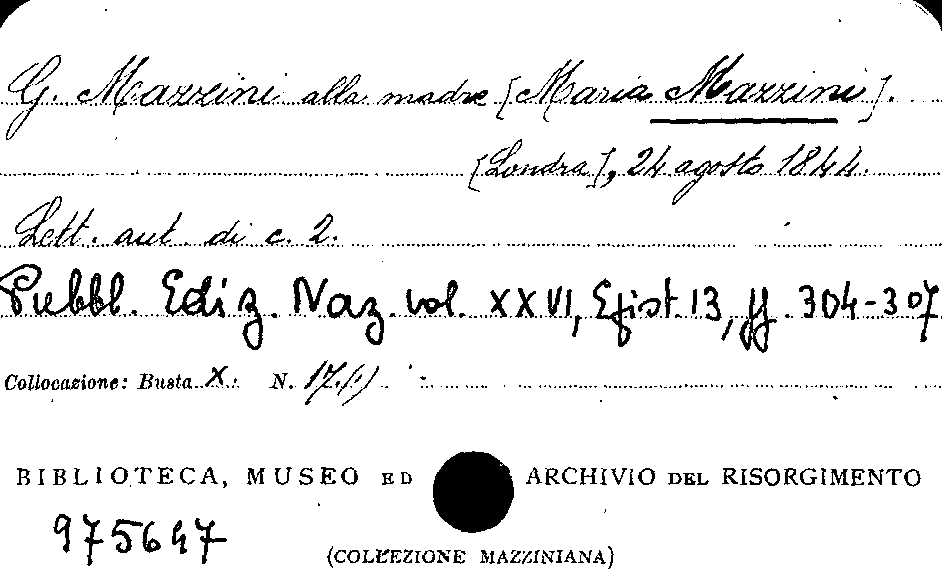 G. Mazzini alla madre [Maria Mazzini].
[Londra], 24 agosto 1844.
Lett. aut. di c. 2.
Pubbl. Ediz. Naz. vol. XXVI, Epist. 13, pp. 304-307.
Collocazione: Busta X. N. 17.(1)
BIBLIOTECA, MUSEO ED ARCHIVIO DEL RISORGIMENTO
975647
(COLLEZIONE MAZZINIANA)